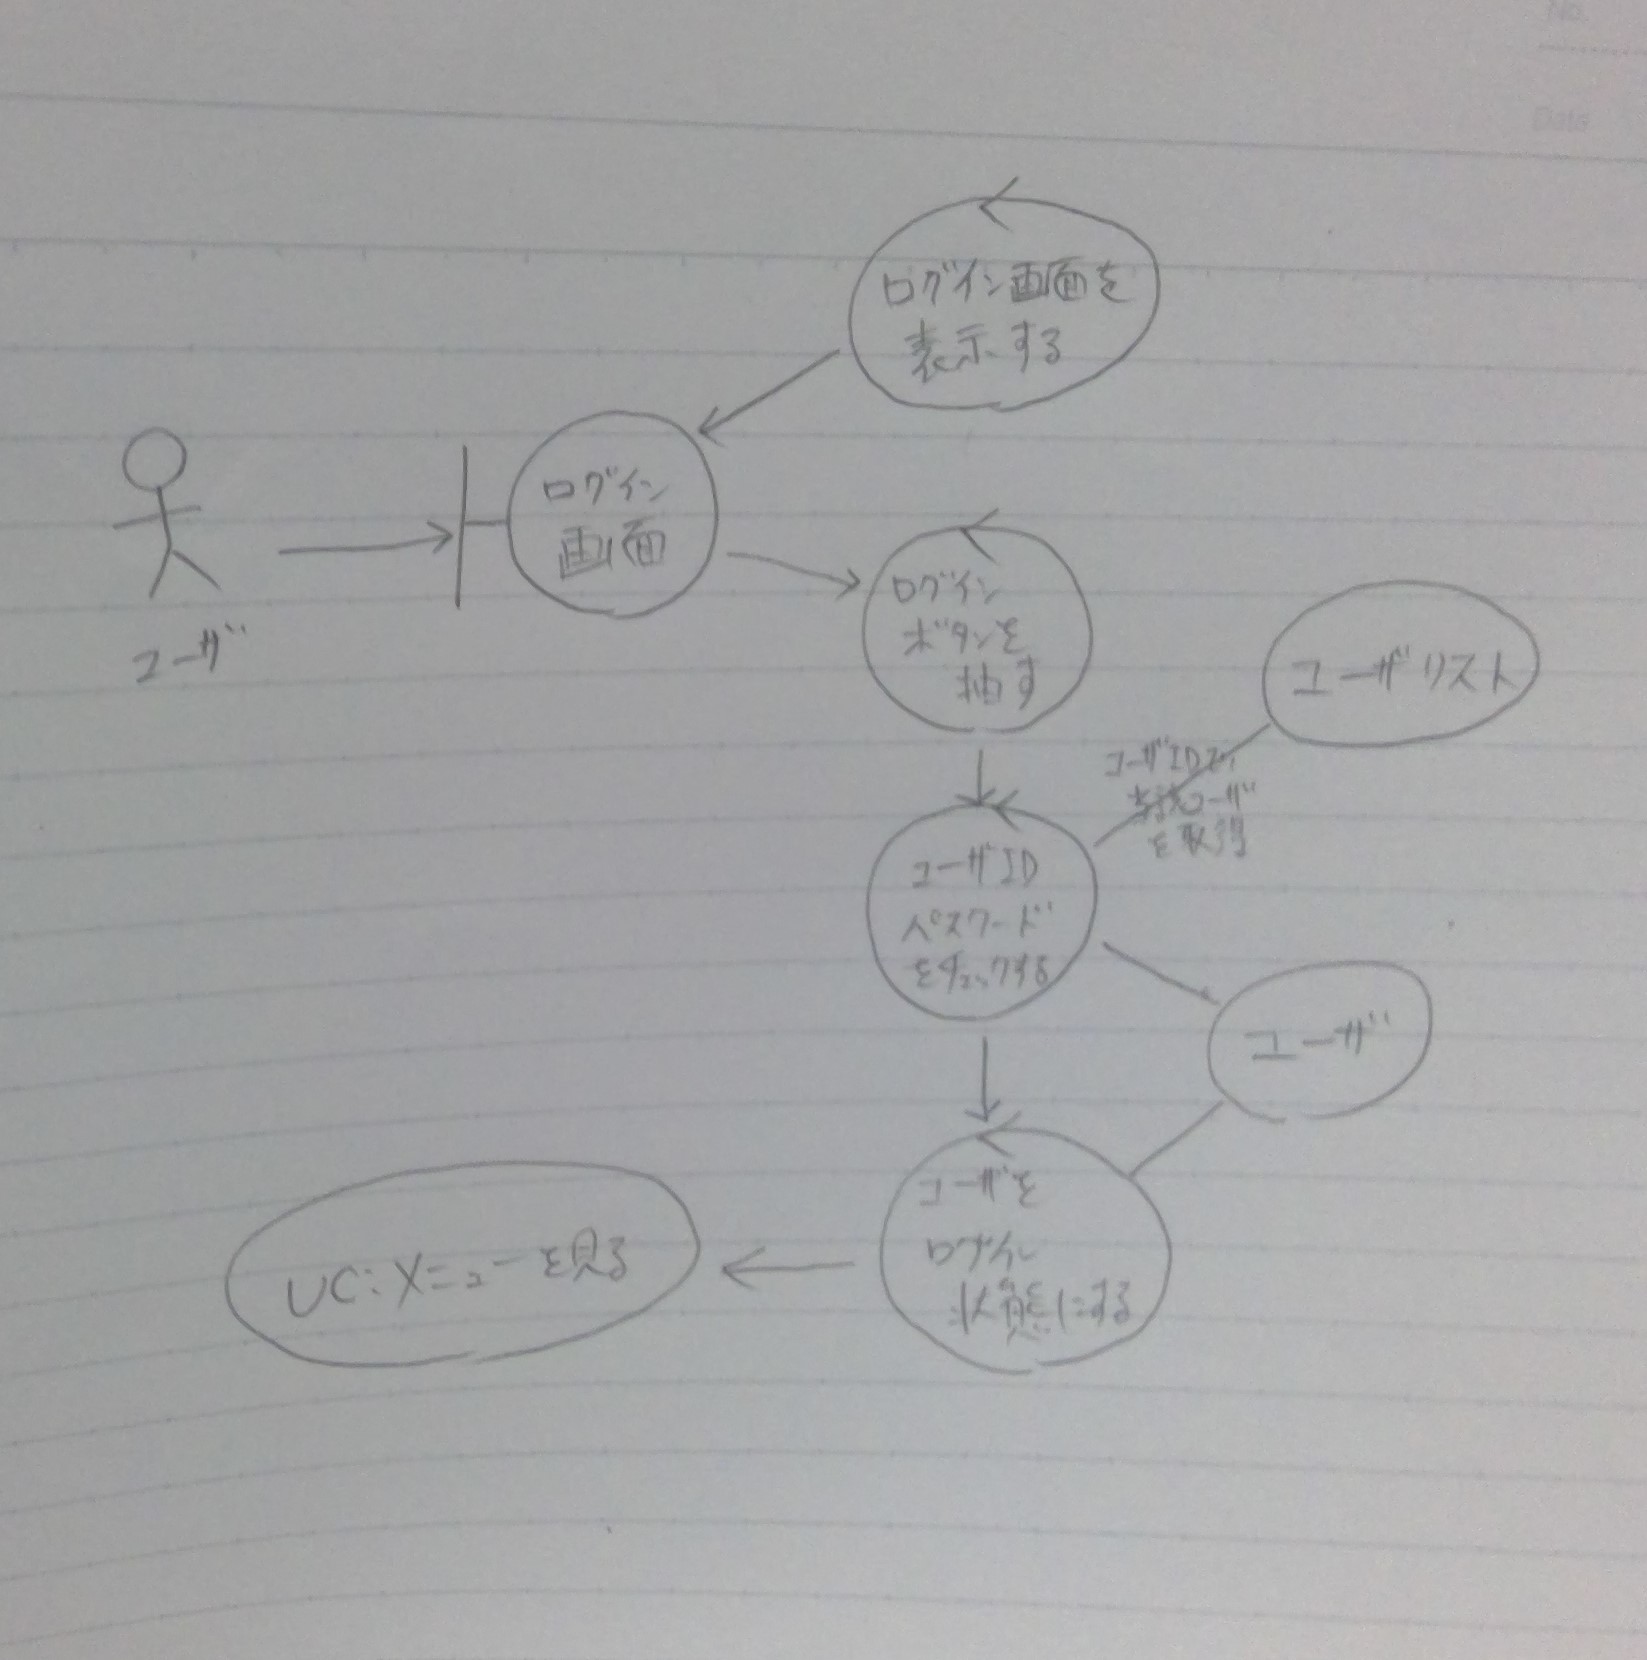 No.
Date
ログイン画面を
表示する
ログイン
画面
ユーザ
ログイン
ボタンを
押す
ユーザリスト
ユーザIDで
ユーザ
を取得
ユーザID
パスワード
をチェックする
ユーザ
ユーザを
ログイン
状態にする
UC:メニューを見る